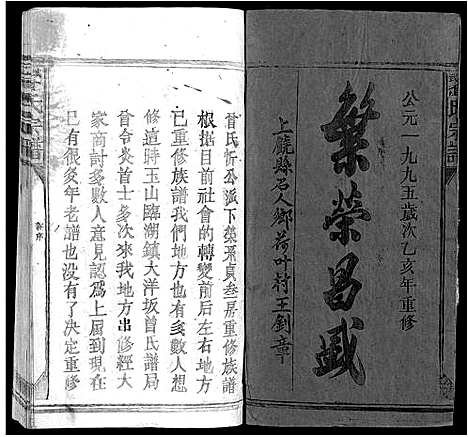 公元一九九五歲次乙亥年重修
繁榮昌盛
上饒縣石人鄉荷叶村王劉章
曾氏忻公派下榮系貞叁房重修族譜
根据目前社會的轉變前后左右地方
已重修族譜我們地方也有多數人想
修適時玉山臨湖鎮大洋坂曾氏譜局
曾令炎首士多次來我地方出修經大
家商討多數人意見認為上届到現在
已有很多年老譜也没有了决定重修